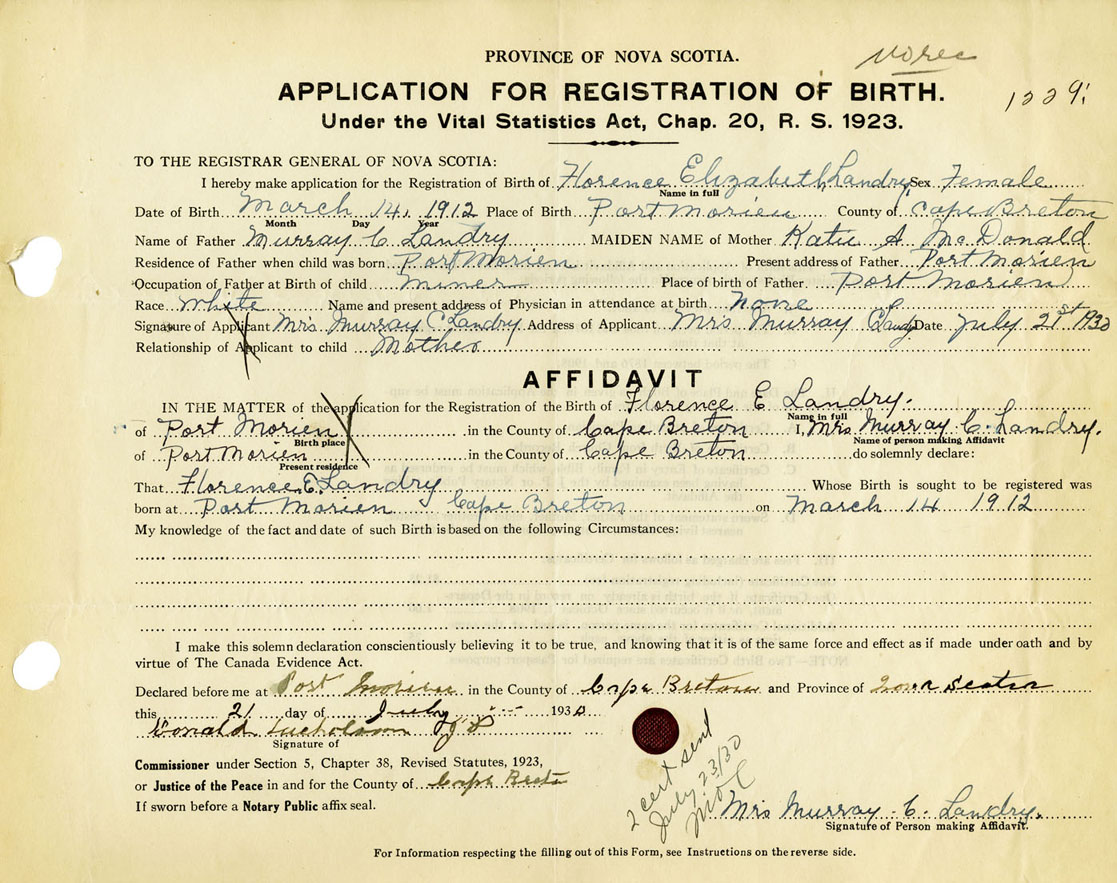 PROVINCE OF NOVA SCOTIA.
No rec
APPLICATION FOR REGISTRATION OF BIRTH.
Under the Vital Statistics Act, Chap. 20, R. S. 1923.
TO THE REGISTRAR GENERAL OF NOVA SCOTIA:
I hereby make application for the Registration of Birth of Florence Elizabeth Landry Sex Female
Name in full
Date of Birth March 14, 1912 Place of Birth Port Morien County of Cape Breton
Month Day Year
Name of Father Murray C Landry MAIDEN NAME of Mother Katie A McDonald
Residence of Father when child was born Port Morien Present address of Father Port Morien
Occupation of Father at Birth of child miner Place of birth of Father. Port Morien
Race White Name and present address of Physician in attendance at birth none
Signature of Applicant Mrs. Murray C Landry Address of Applicant Mrs Murray C Landry Date July 21st 1930
Relationship of Applicant to child Mother
AFFIDAVIT
IN THE MATTER of the application for the Registration of the Birth of Florence E Landry.
Name in full
of Port Morien in the County of Cape Breton I, Mrs Murray C. Landry.
Birth place Name of person making Affidavit
of Port Morien in the County of Cape Breton do solemnly declare:
Present residence
That Florence E. Landry Whose Birth is sought to be registered was
born at Port Morien Cape Breton on March 14 1912
My knowledge of the fact and date of such Birth is based on the following Circumstances:
I make this solemn declaration conscientiously believing it to be true, and knowing that it is of the same force and effect as if made under oath and by
virtue of The Canada Evidence Act.
Declared before me at Port Morien in the County of Cape Breton and Province of Nova Scotia
this 21 day of July 1930
Donald Nicholson J P
Signature of
Commissioner under Section 5, Chapter 38, Revised Statutes, 1923,
or Justice of the Peace in and for the County of Cape Breton
If sworn before a Notary Public affix seal.
2 cert sent
July 23/30
Mrs Murray C. Landry.
Signature of Person making Affidavit.
For Information respecting the filling out of this Form, see Instructions on the reverse side.